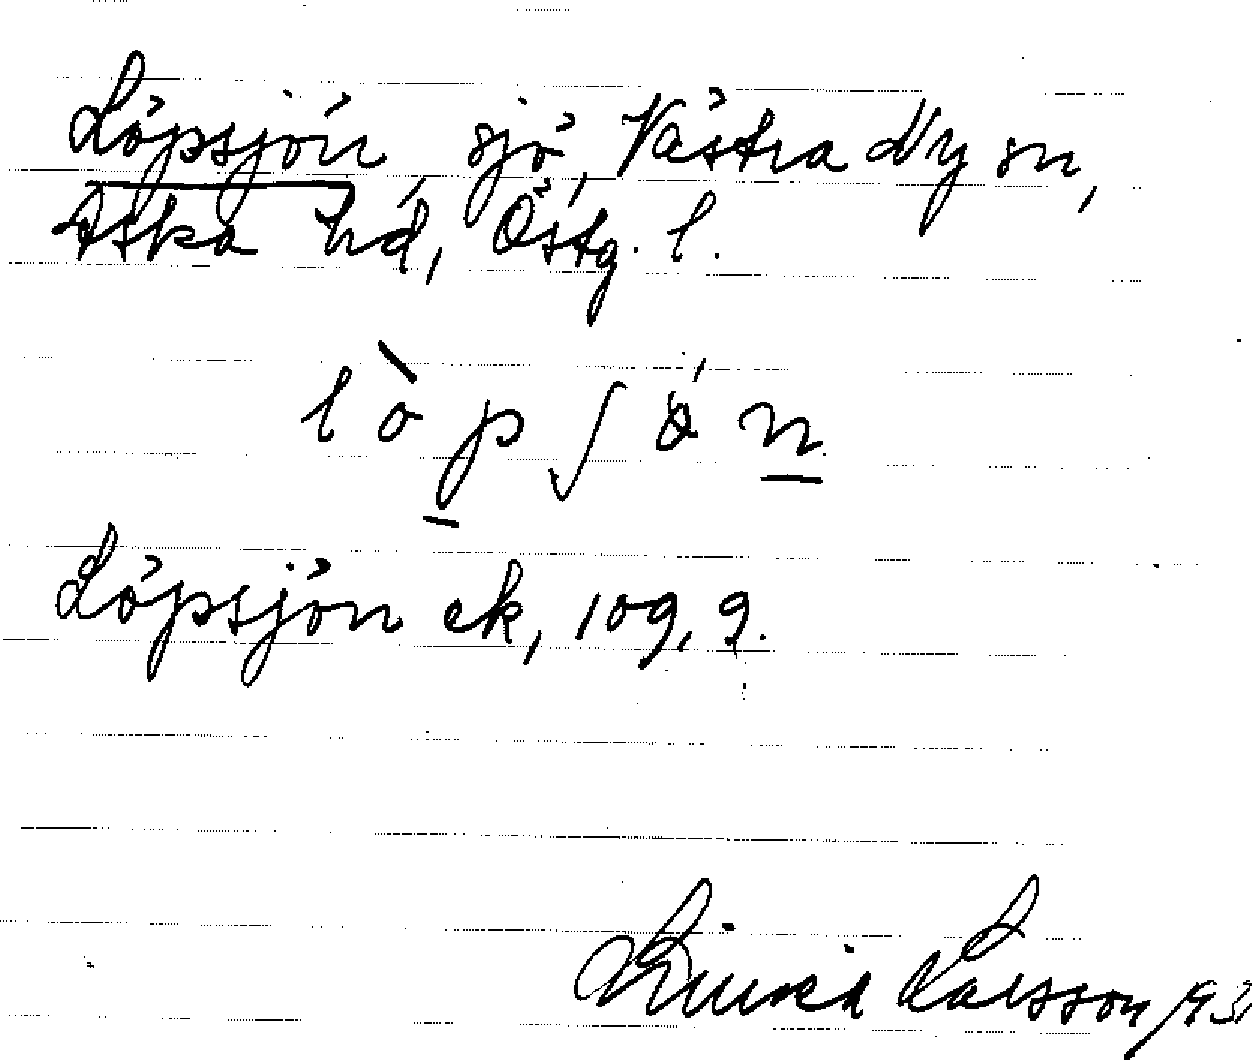 Löpsjön, sjö, Västra Ny sn,
Aska hd, Östg. l.
lòpʃǿn
Löpsjön ek, 109, 9.
Larsson 193